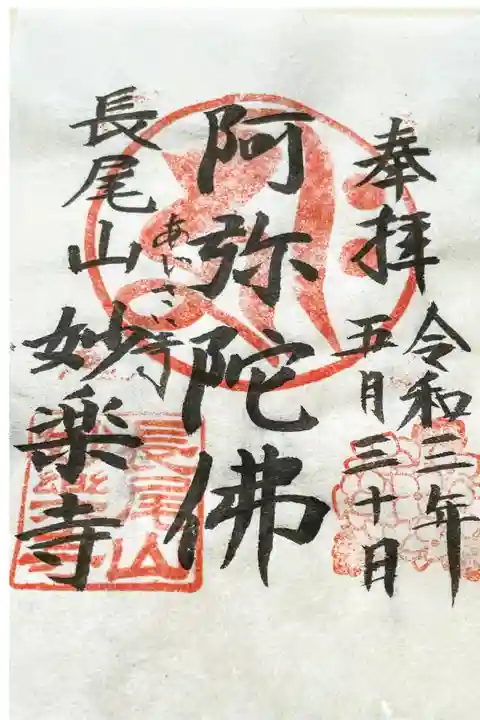 奉拝
令和三年
五月三十日
阿弥陀佛
あじさい寺
長尾山
妙楽寺
長尾山